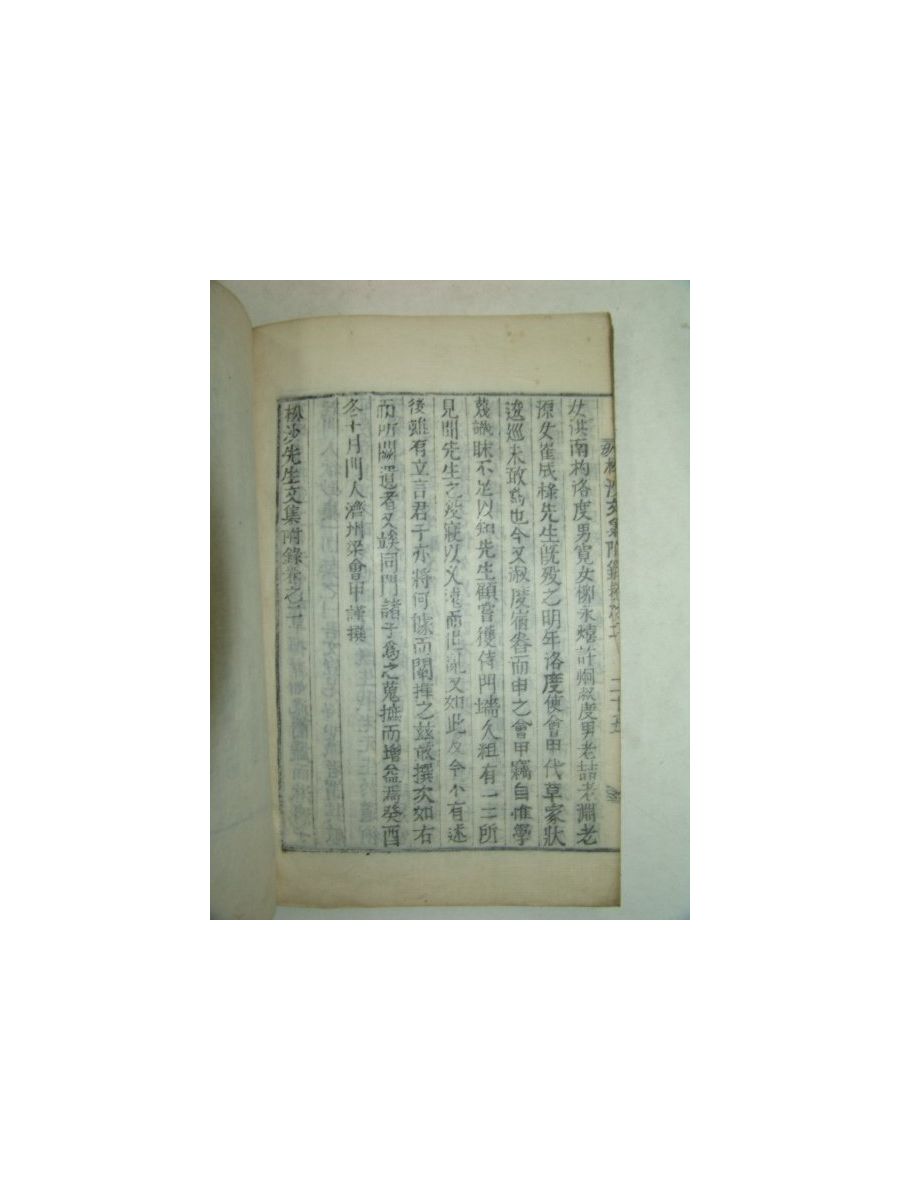 女洪南杓洛度男寬女柳永熺許炯叔度男老喆老淵老
源女崔成棣先生旣歿之明年洛度使會甲代草家狀
逡巡未敢爲也今又叔度宿眷而申之會甲竊自惟學
蔑識昧不足以知先生顧嘗獲侍門墻久粗有一二所
見聞先生之沒寢以久遠而世亂又如此及今不有述
後雖有立言君子亦將何據而闡揮之玆敢撰次如右
而所闕遺者又竢同門諸子爲之蒐摭而增益焉癸酉
冬十月門人濟州梁會甲謹撰
松沙先生文集附錄卷之二
松沙文集附錄卷之二 二十五